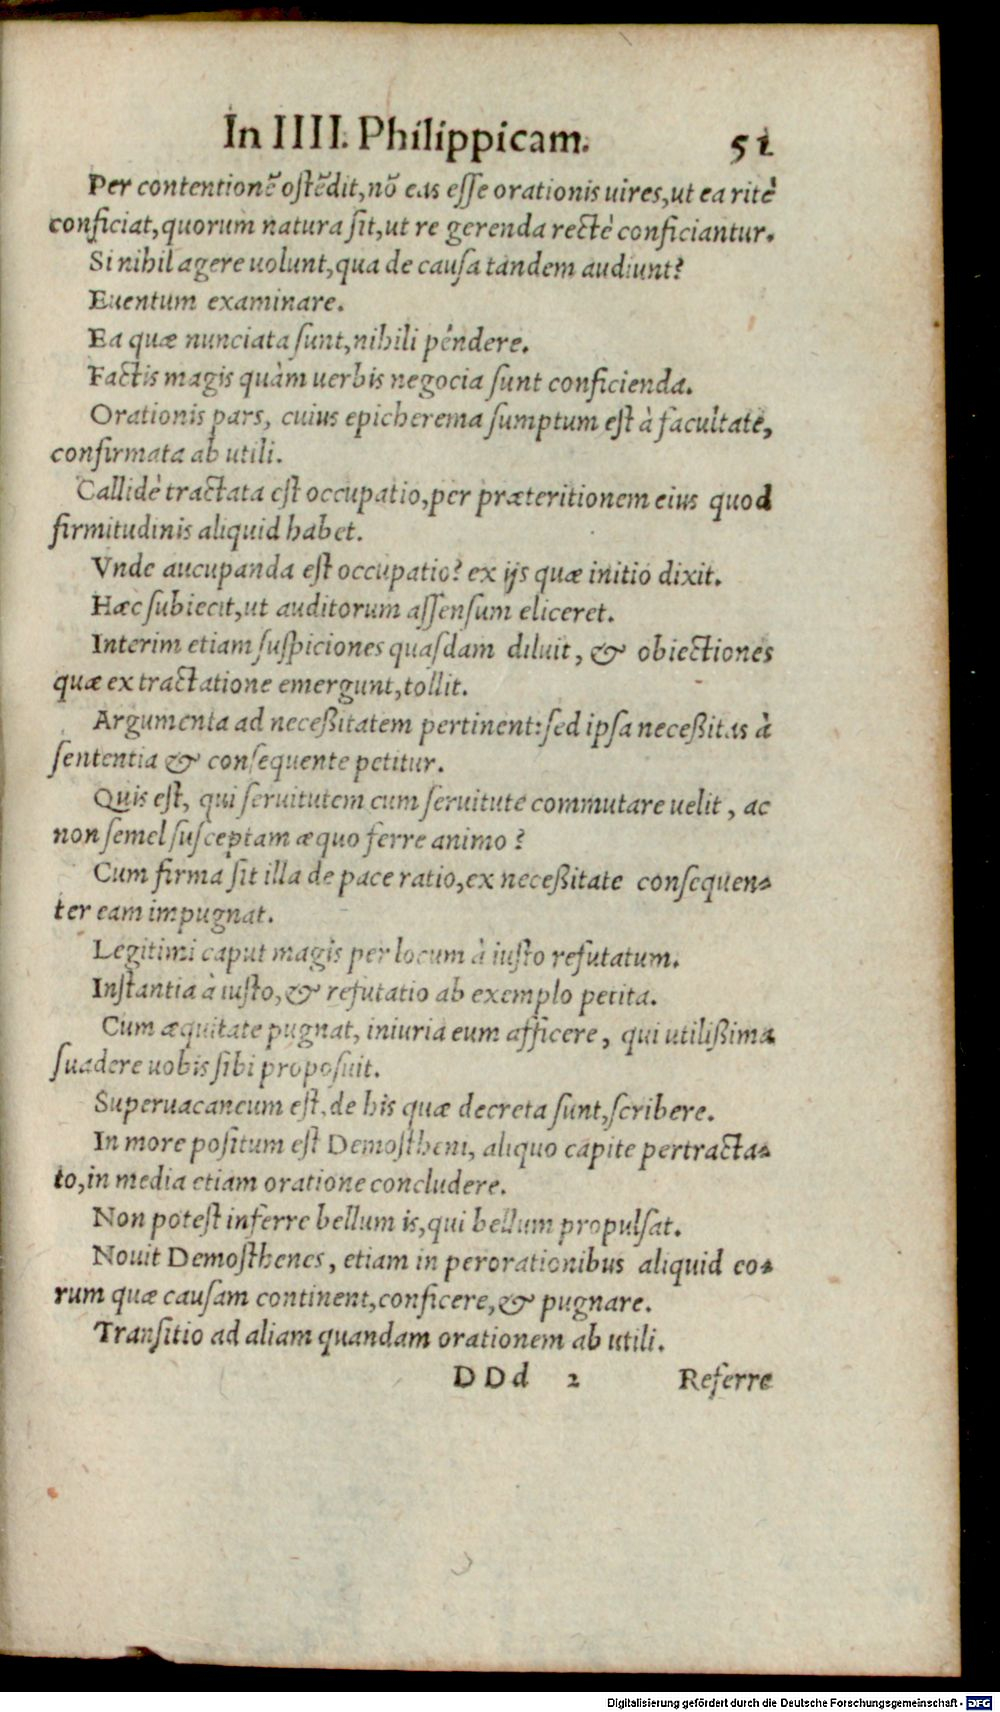 In IIII. Philippicam. 51
Per contentionē ostēdit, nō eas esse orationis uires, ut ea ritè
conficiat, quorum natura sit, ut re gerenda rectè conficiantur.
Si nihil agere uolunt, qua de causa tandem audiunt?
Euentum examinare.
Ea quæ nunciata sunt, nihili péndere.
Factis magis quàm uerbis negocia sunt conficienda.
Orationis pars, cuius epicherema sumptum est à facultate,
confirmata ab utili.
Callidè tractata est occupatio, per præteritionem eius quod
firmitudinis aliquid habet.
Vnde aucupanda est occupatio? ex ijs quæ initio dixit.
Hæc subiecit, ut auditorum assensum eliceret.
Interim etiam suspiciones quasdam diluit, & obiectiones
quæ ex tractatione emergunt, tollit.
Argumenta ad neceßitatem pertinent: sed ipsa neceßitas à
sententia & consequente petitur.
Quis est, qui seruitutem cum seruitute commutare uelit, ac
non semel susceptam æquo ferre animo?
Cum firma sit illa de pace ratio, ex neceßitate consequen-
ter eam impugnat.
Legitimi caput magis per locum à iusto refutatum.
Instantia à iusto, & refutatio ab exemplo petita.
Cum æquitate pugnat, iniuria eum afficere, qui utilißima
suadere uobis sibi proposuit.
Superuacaneum est, de his quæ decreta sunt, scribere.
In more positum est Demostheni, aliquo capite pertracta-
to, in media etiam oratione concludere.
Non potest inferre bellum is, qui bellum propulsat.
Nouit Demosthenes, etiam in perorationibus aliquid eo-
rum quæ causam continent, conficere, & pugnare.
Transitio ad aliam quandam orationem ab utili.
DDd 2 Referre
Digitalisierung gefördert durch die Deutsche Forschungsgemeinschaft - DFG